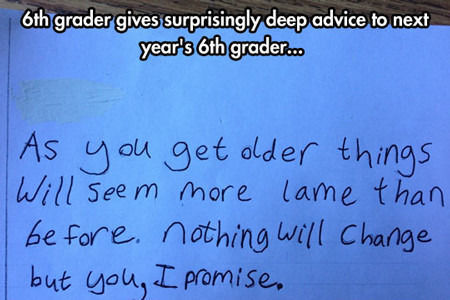 6th grader gives surprisingly deep advice to next
year's 6th grader...
As you get older things
Will seem more lame than
before. nothing will Change
but you, I promise.